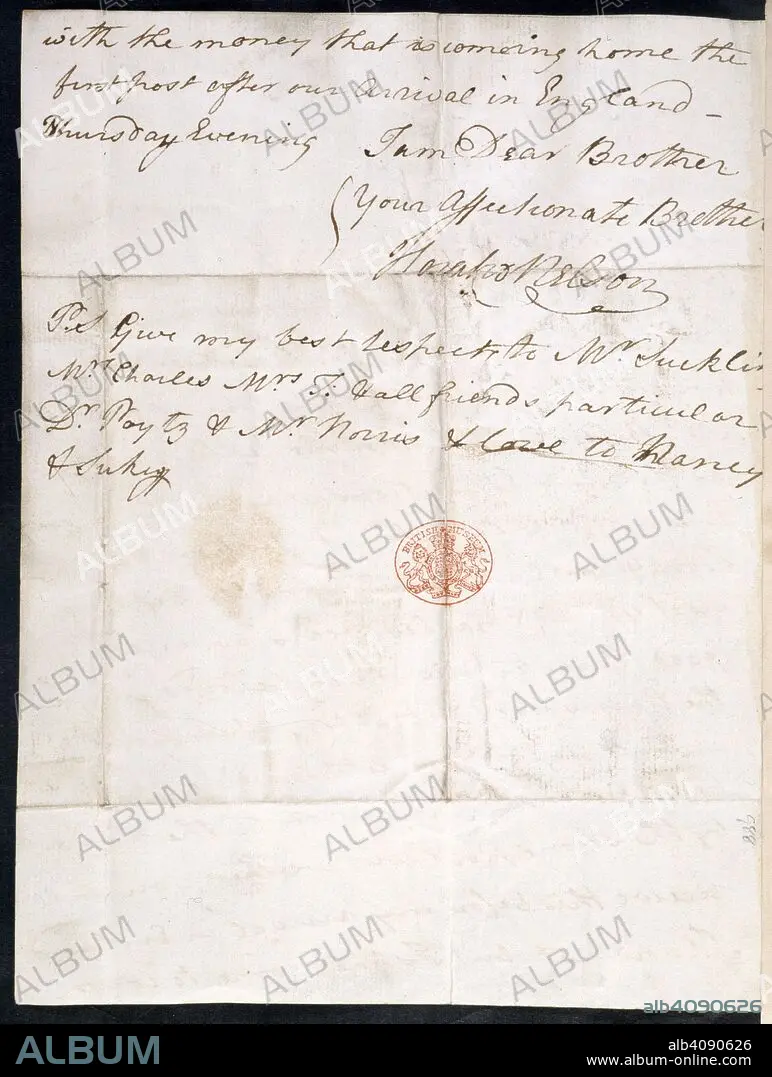 with the money that is comeing home the
first post after our Arrival in England –
Thursday Evening
I am Dear Brother
Your Affectionate Brother
Horatio Nelson
P.S Give my best respects to Mr. Sucklin
Mr. Charles Mrs. T: & all friends particular
Dr. Poytz & Mr. Norris & love to Nancy
& Sukey
BRITISH MUSEUM
ALBUM
alb4090626
ALBUM
alb4090626
www.album-online.com